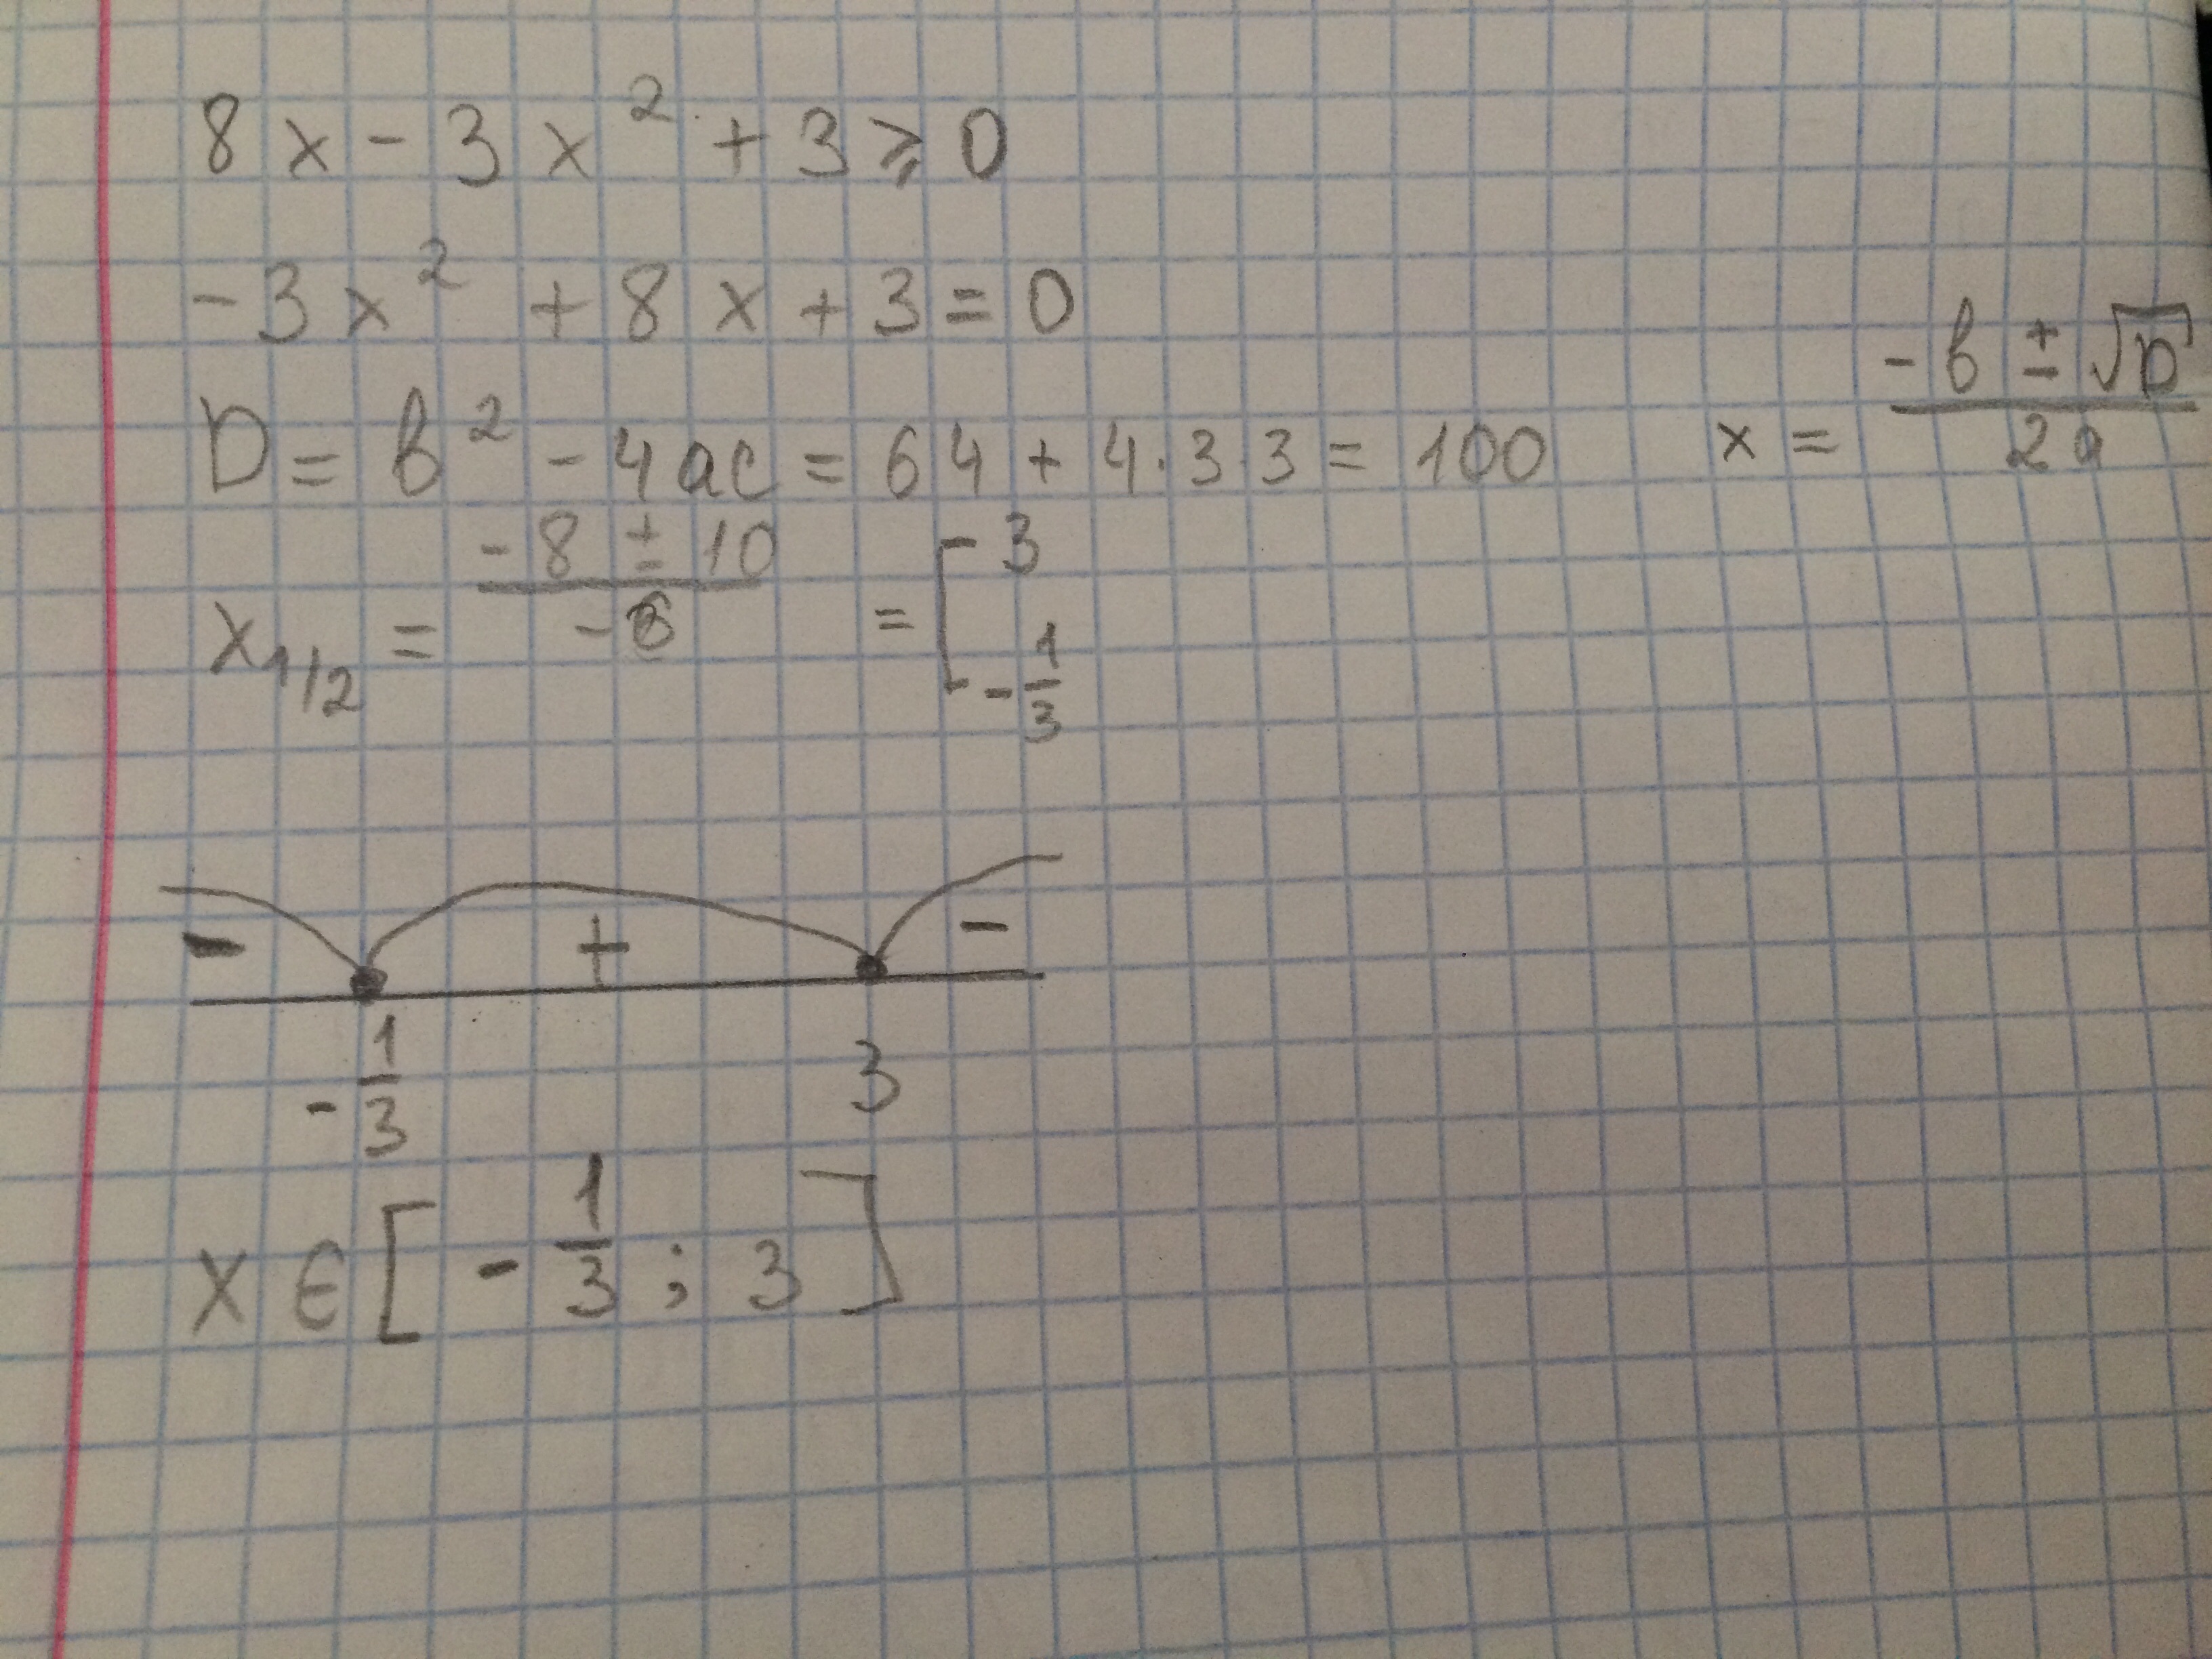 8x - 3x² + 3 ⩾ 0
-3x² + 8x + 3 = 0
D = b² - 4ac = 64 + 4·3·3 = 100
x = (-b ± √D)/(2a)
x₁/₂ = (-8 ± 10)/(-6) = [3; -1/3
- + -
-1/3 3
x ∈ [-1/3; 3]